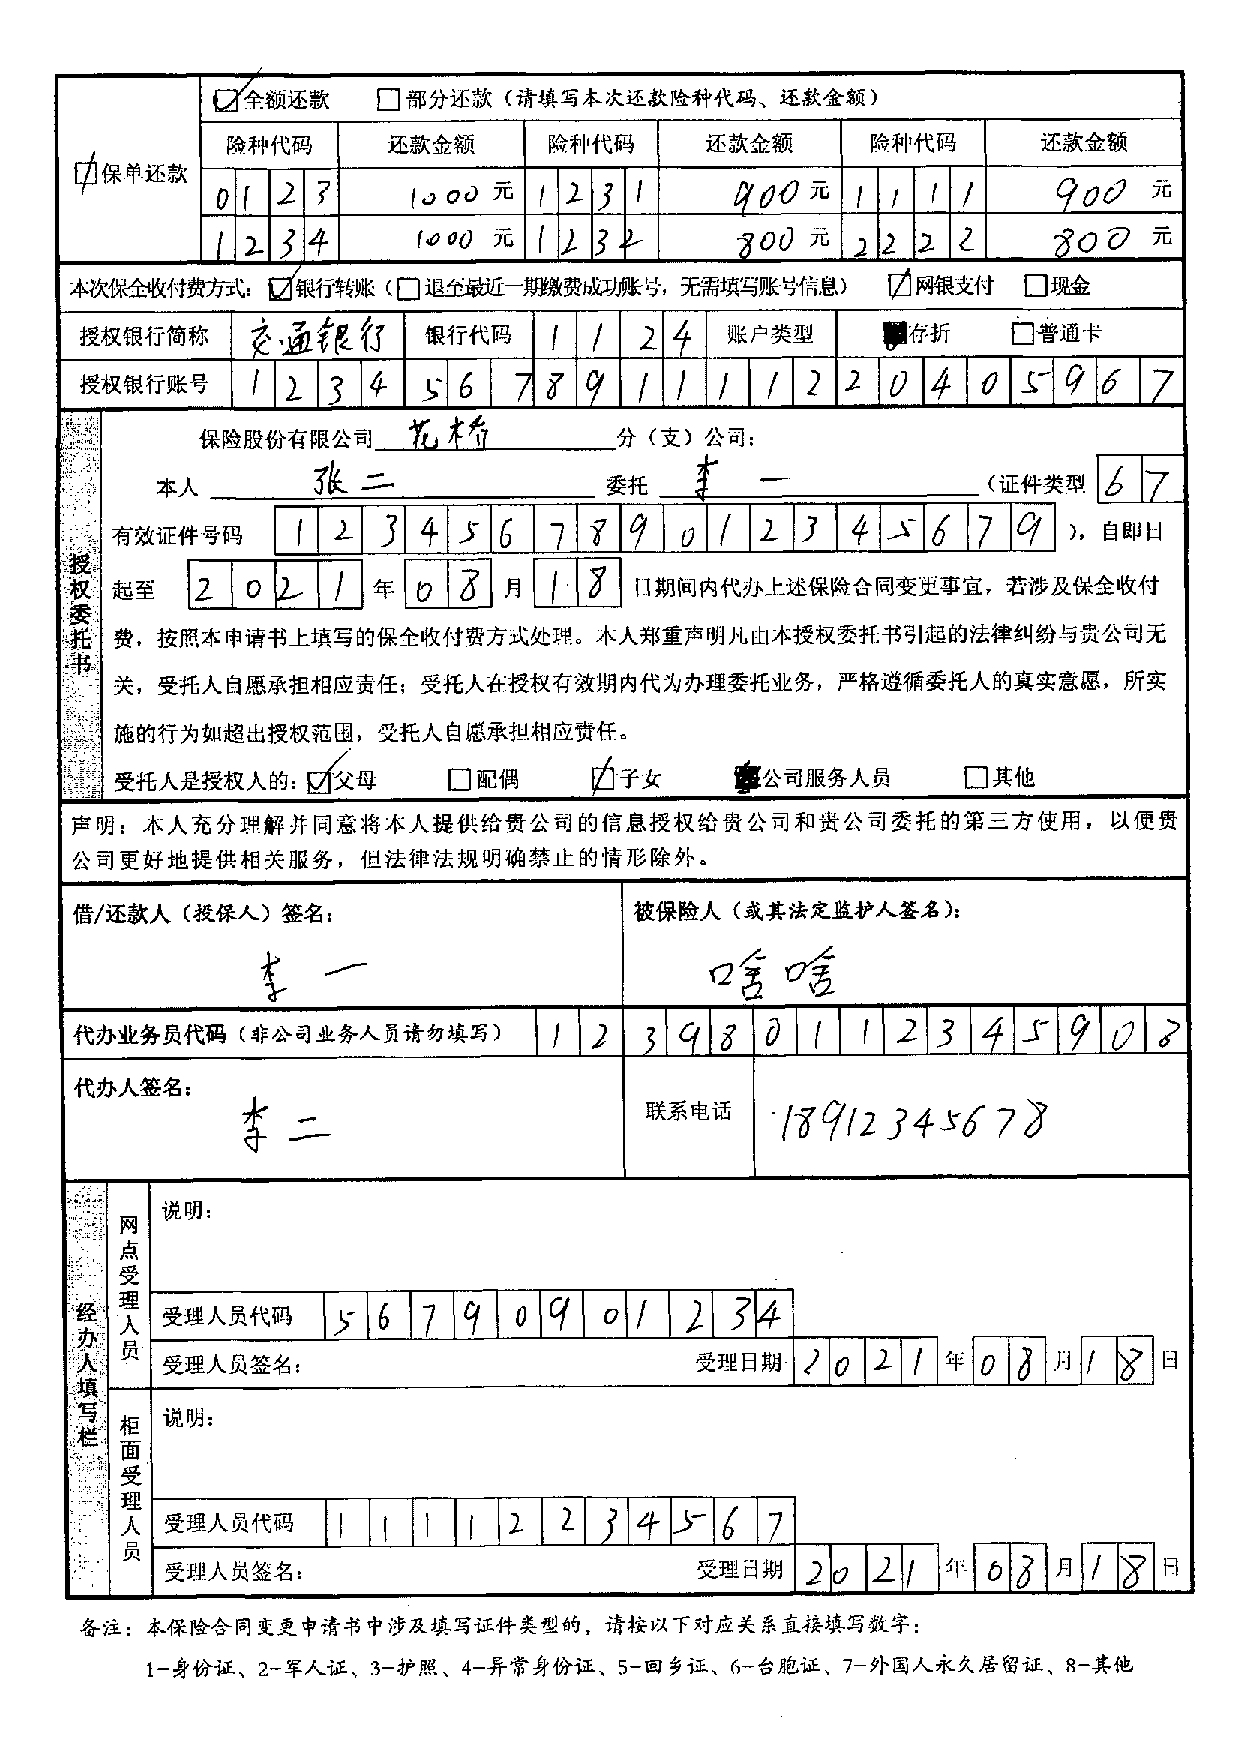 ☑全额还款 □部分还款（请填写本次还款险种代码、还款金额）
☑保单还款
险种代码 还款金额 险种代码 还款金额 险种代码 还款金额
0123 1000元 1231 900元 1111 900元
1234 1000元 1232 800元 2222 800元
本次保全收付费方式：☑银行转账（□退至最近一期缴费成功账号，无需填写账号信息） ☑网银支付 □现金
授权银行简称 交通银行 银行代码 1124 账户类型 ■存折 □普通卡
授权银行账号 1234567891111220405967
授权委托书
保险股份有限公司 花桥 分（支）公司：
本人 张二 委托 李一 （证件类型 67
有效证件号码 123456789012345679 ），自即日
起至 2021 年 08 月 18 日期间内代办上述保险合同变更事宜，若涉及保全收付
费，按照本申请书上填写的保全收付费方式处理。本人郑重声明凡由本授权委托书引起的法律纠纷与贵公司无
关，受托人自愿承担相应责任；受托人在授权有效期内代为办理委托业务，严格遵循委托人的真实意愿，所实
施的行为如超出授权范围，受托人自愿承担相应责任。
受托人是授权人的：☑父母 □配偶 ☑子女 ■公司服务人员 □其他
声明：本人充分理解并同意将本人提供给贵公司的信息授权给贵公司和贵公司委托的第三方使用，以便贵
公司更好地提供相关服务，但法律法规明确禁止的情形除外。
借/还款人（投保人）签名： 被保险人（或其法定监护人签名）：
李一 啥啥
代办业务员代码（非公司业务人员请勿填写） 123980112345908
代办人签名：
李二 联系电话 18912345678
经办人填写栏
网点受理人员
说明：
受理人员代码 56790901234
受理人员签名： 受理日期 2021年08月18日
柜面受理人员
说明：
受理人员代码 11112234567
受理人员签名： 受理日期 2021年08月18日
备注：本保险合同变更申请书中涉及填写证件类型的，请按以下对应关系直接填写数字：
1-身份证、2-军人证、3-护照、4-异常身份证、5-回乡证、6-台胞证、7-外国人永久居留证、8-其他